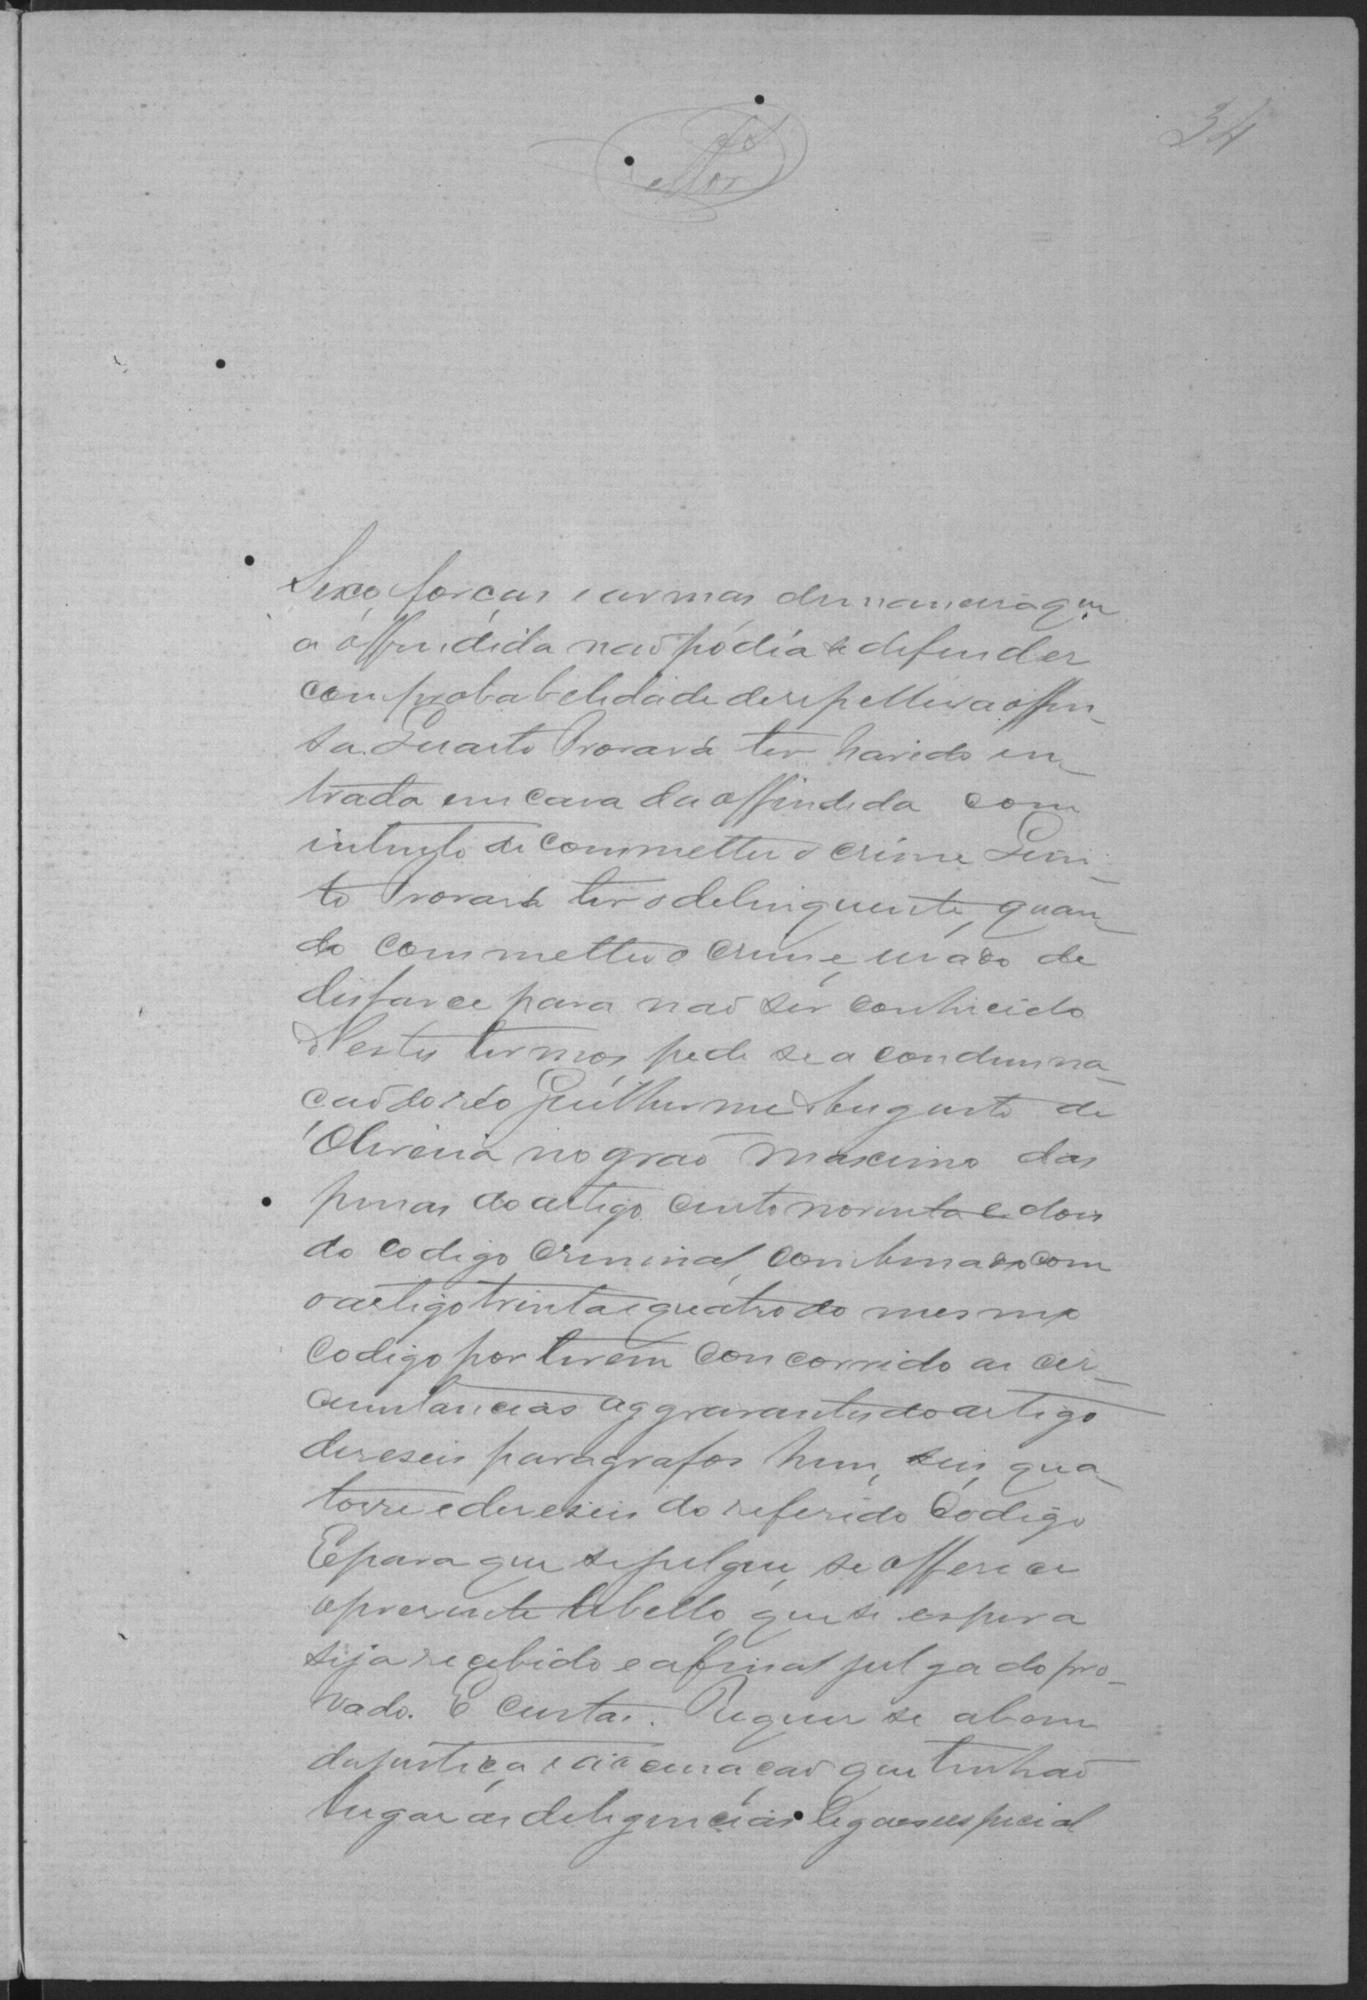 34
Sexo, forças e armas de maneira que
a offendida não podia se defender
com probabelidade de repellir a offen-
sa. Quarto Provará ter havido en-
trada em casa da offendida com
intuyto de commetter o crime Quin-
to Provará ter o delinquente, quan-
do commetteu o crime, usado de
disfarce para não ser conhecido
Nestes termos, pede se a condemna-
ção do réo Guilherme Augusto de
Oliveira no grao maximo das
penas do artigo cento noventa e dois
do codigo criminal, combinado com
o artigo trinta e quatro do mesmo
Codigo por terem concorrido as cir-
cunstancias aggravantes do artigo
dereseis paragrafos hum, seis, qua-
torze e dereseis do referido Codigo
E para que se julgue, se offerece
o presente libello, que se espera
seja recebido e afinal julgado pro-
vado. E custas. Requer se a bem
da justiça e accusação que tenhão
lugar as deligencias legaes especial